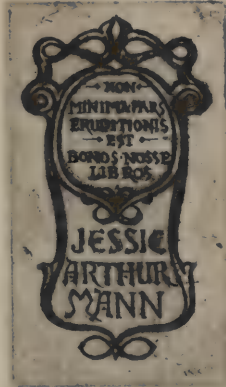 NON
MINIMA PARS
ERUDITIONIS
EST
BONOS·NOSSE
LIBROS
JESSIE
ARTHUR
MANN